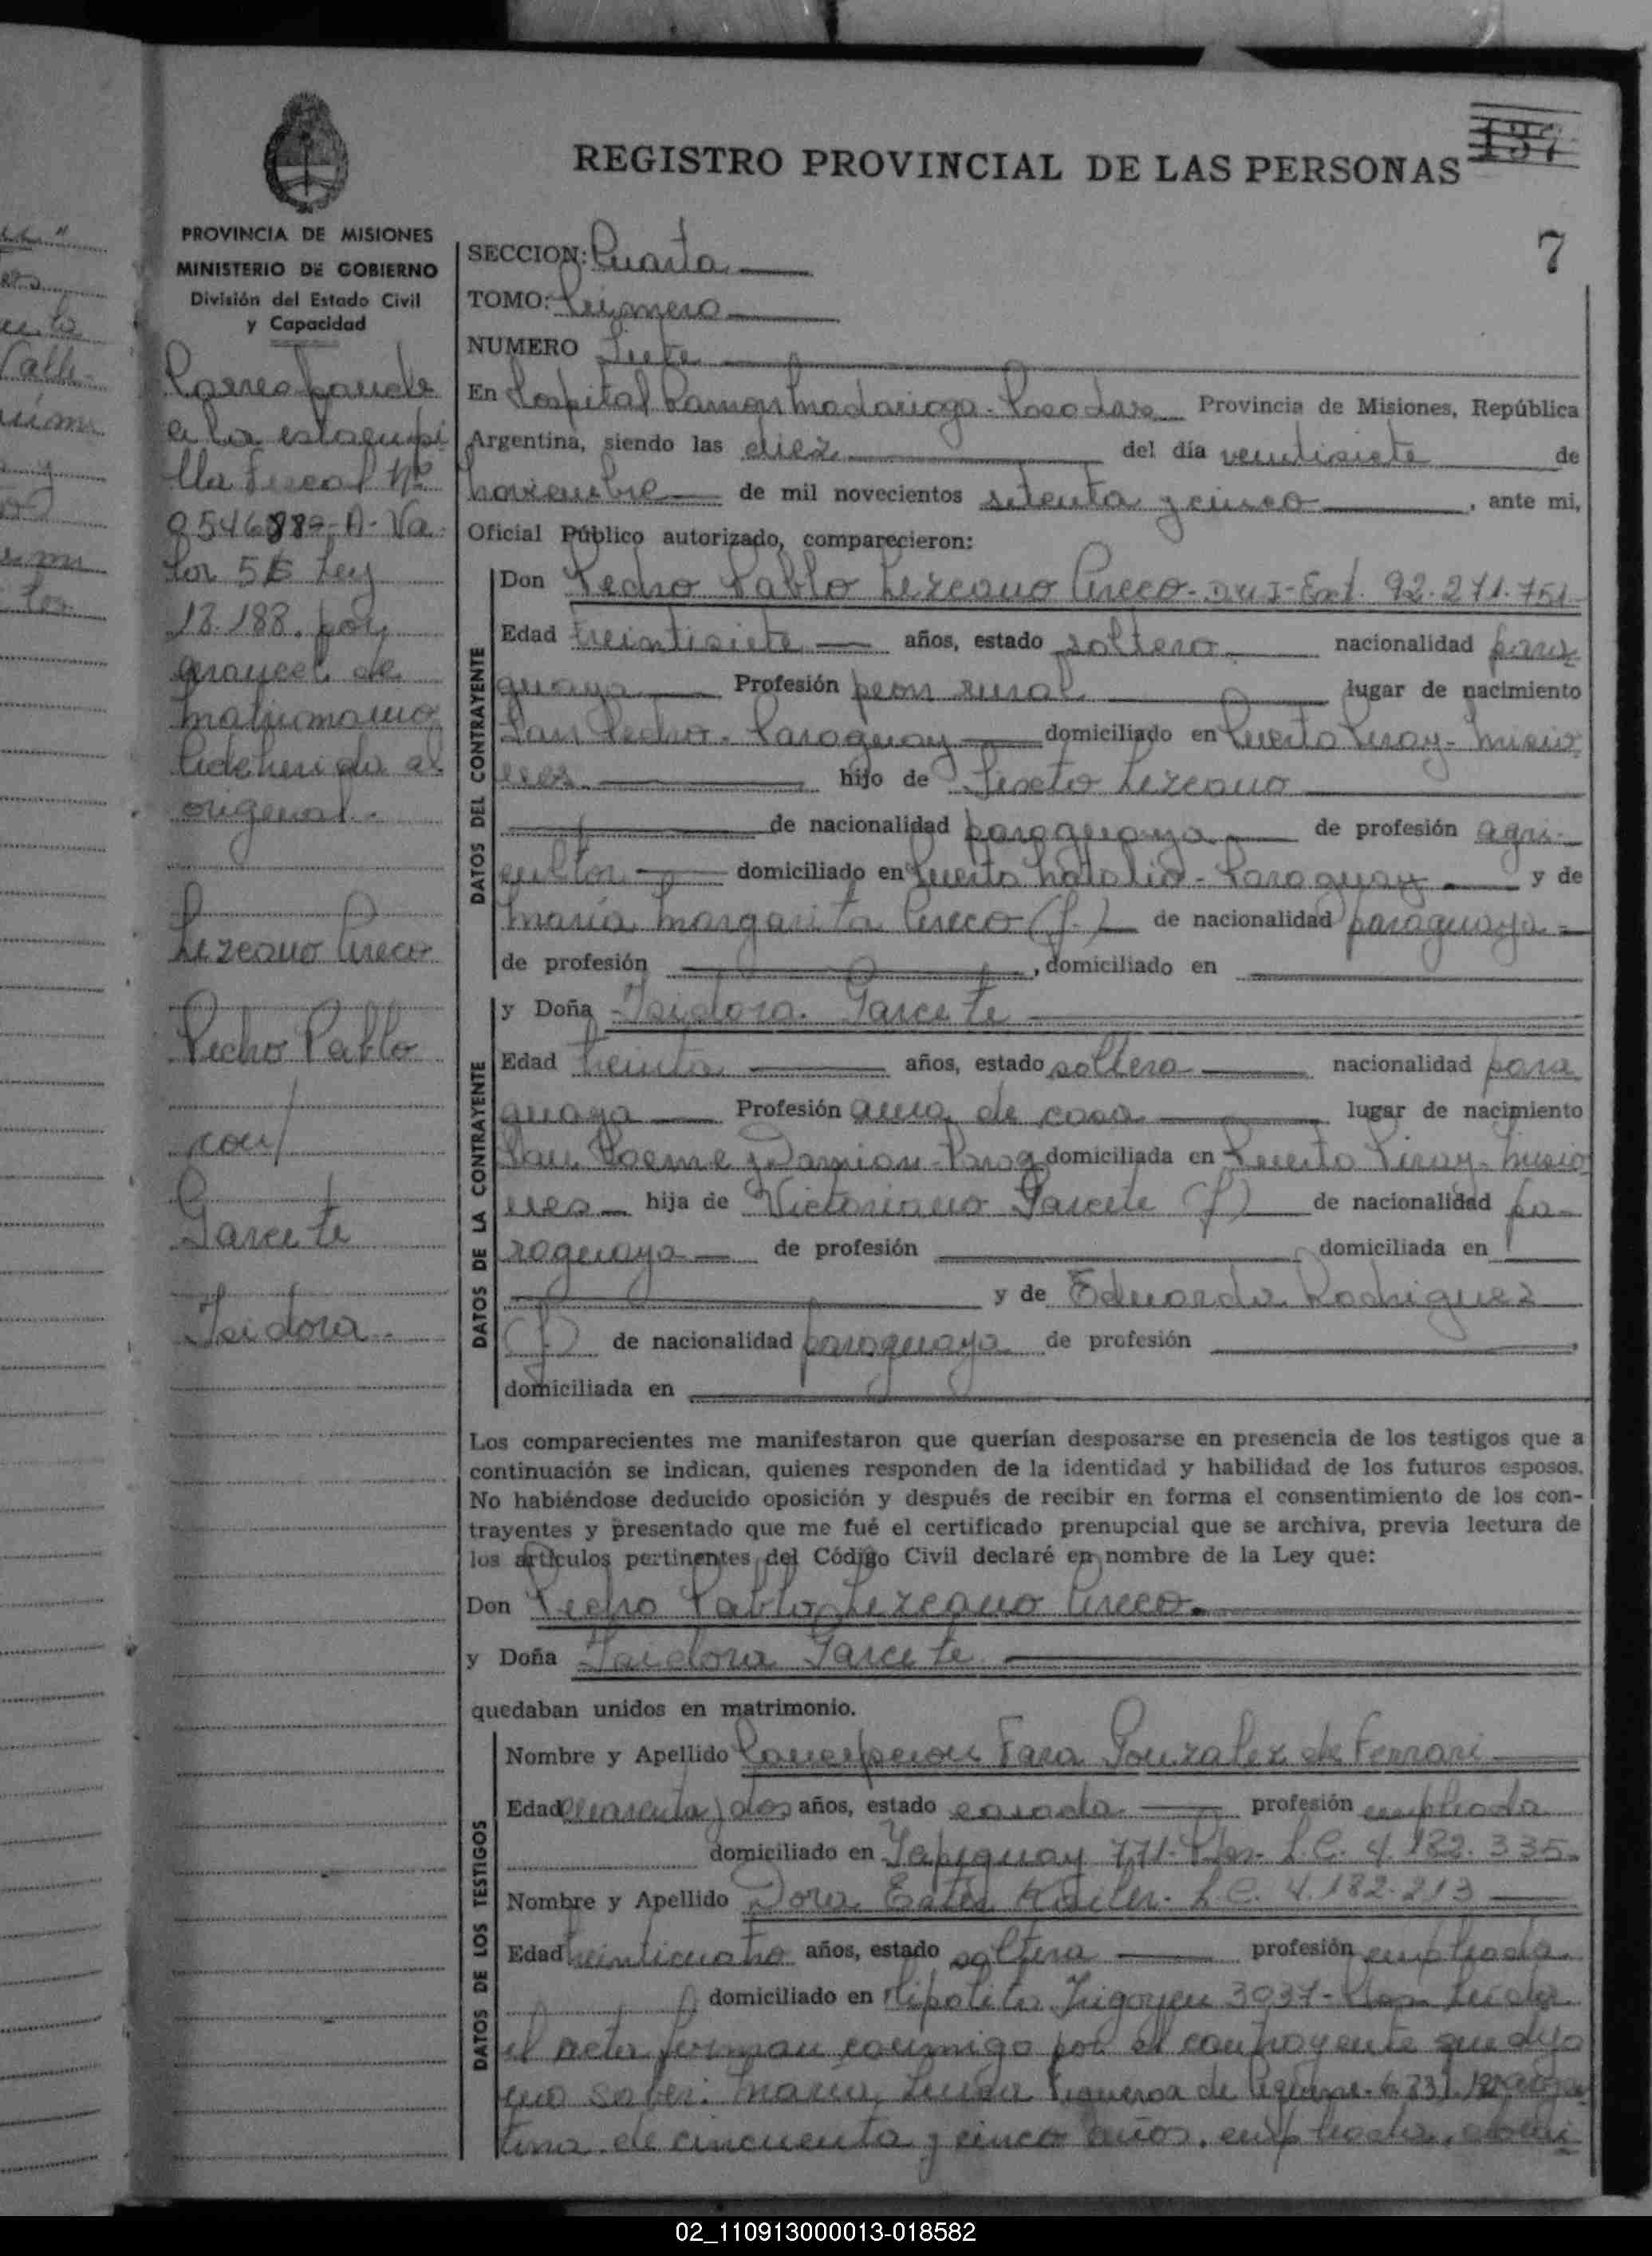 137
REGISTRO PROVINCIAL DE LAS PERSONAS
7
PROVINCIA DE MISIONES
MINISTERIO DE GOBIERNO
División del Estado Civil
y Capacidad
Corresponde
a la estampi
lla fiscal Nº
Va
lor 5 Ley
18.188. por
arancel de
matrimonio
adherida al
original.
Lezcano Cireco
Pedro Pablo
con/
Garcete
Isidora.
SECCION: Cuarta
TOMO: Primero
NUMERO Siete
En Hospital Ramon Madariaga - Posadas Provincia de Misiones, República
Argentina, siendo las diez del día veintisiete de
noviembre de mil novecientos setenta y cinco, ante mi,
Oficial Público autorizado, comparecieron:
DATOS DEL CONTRAYENTE
Don Pedro Pablo Lezcano Cireco - DNI - Ext. 92.271.751
Edad treintisiete años, estado soltero nacionalidad para
guaya Profesión peon rural lugar de nacimiento
San Pedro - Paraguay domiciliado en Puerto Piray - Misio
nes. hijo de Sixto Lezcano
de nacionalidad paraguaya de profesión agri-
cultor domiciliado en Puerto Natalio - Paraguay y de
María Margarita Cireco (f.) de nacionalidad paraguaya
de profesión , domiciliado en
DATOS DE LA CONTRAYENTE
y Doña Isidora Garcete
Edad treinta años, estado soltera nacionalidad para
guaya Profesión ama de casa lugar de nacimiento
San Cosme y Damian - Parag domiciliada en Puerto Piray - Misio
nes hija de Victoriano Garcete (f) de nacionalidad pa-
raguaya de profesión domiciliada en
y de Eduarda Rodriguez
(f) de nacionalidad paraguaya de profesión ,
domiciliada en
Los comparecientes me manifestaron que querían desposarse en presencia de los testigos que a
continuación se indican, quienes responden de la identidad y habilidad de los futuros esposos.
No habiéndose deducido oposición y después de recibir en forma el consentimiento de los con-
trayentes y presentado que me fué el certificado prenupcial que se archiva, previa lectura de
los artículos pertinentes del Código Civil declaré en nombre de la Ley que:
Don Pedro Pablo Lezcano Cireco.
y Doña Isidora Garcete
quedaban unidos en matrimonio.
DATOS DE LOS TESTIGOS
Nombre y Apellido Concepcion Fara Gonzalez de Ferrari
Edad cuarenta y dos años, estado casada profesión empleada
domiciliado en Yapeguay 771 - Pdas - L.C. 4.182.335
Nombre y Apellido Dora Ester L.C. 4.182.213
Edad treinticuatro años, estado soltera profesión empleada
domiciliado en Hipolito Irigoyen 3037 - Pdas Leida
el acta firman conmigo por el contrayente que dijo
no saber: Maria Luisa Figueroa de
tina de cincuenta y cinco años, empleada, domi
02_110913000013-018582